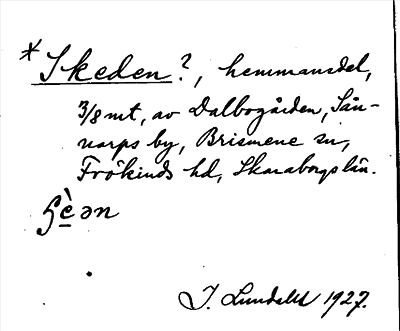 * Skeden?, hemmansdel,
3/8 mt, av Dalbogården, Sån-
narps by, Brismene sn,
Frökinds hd, Skaraborgs län.
I. Lundahl 1927.